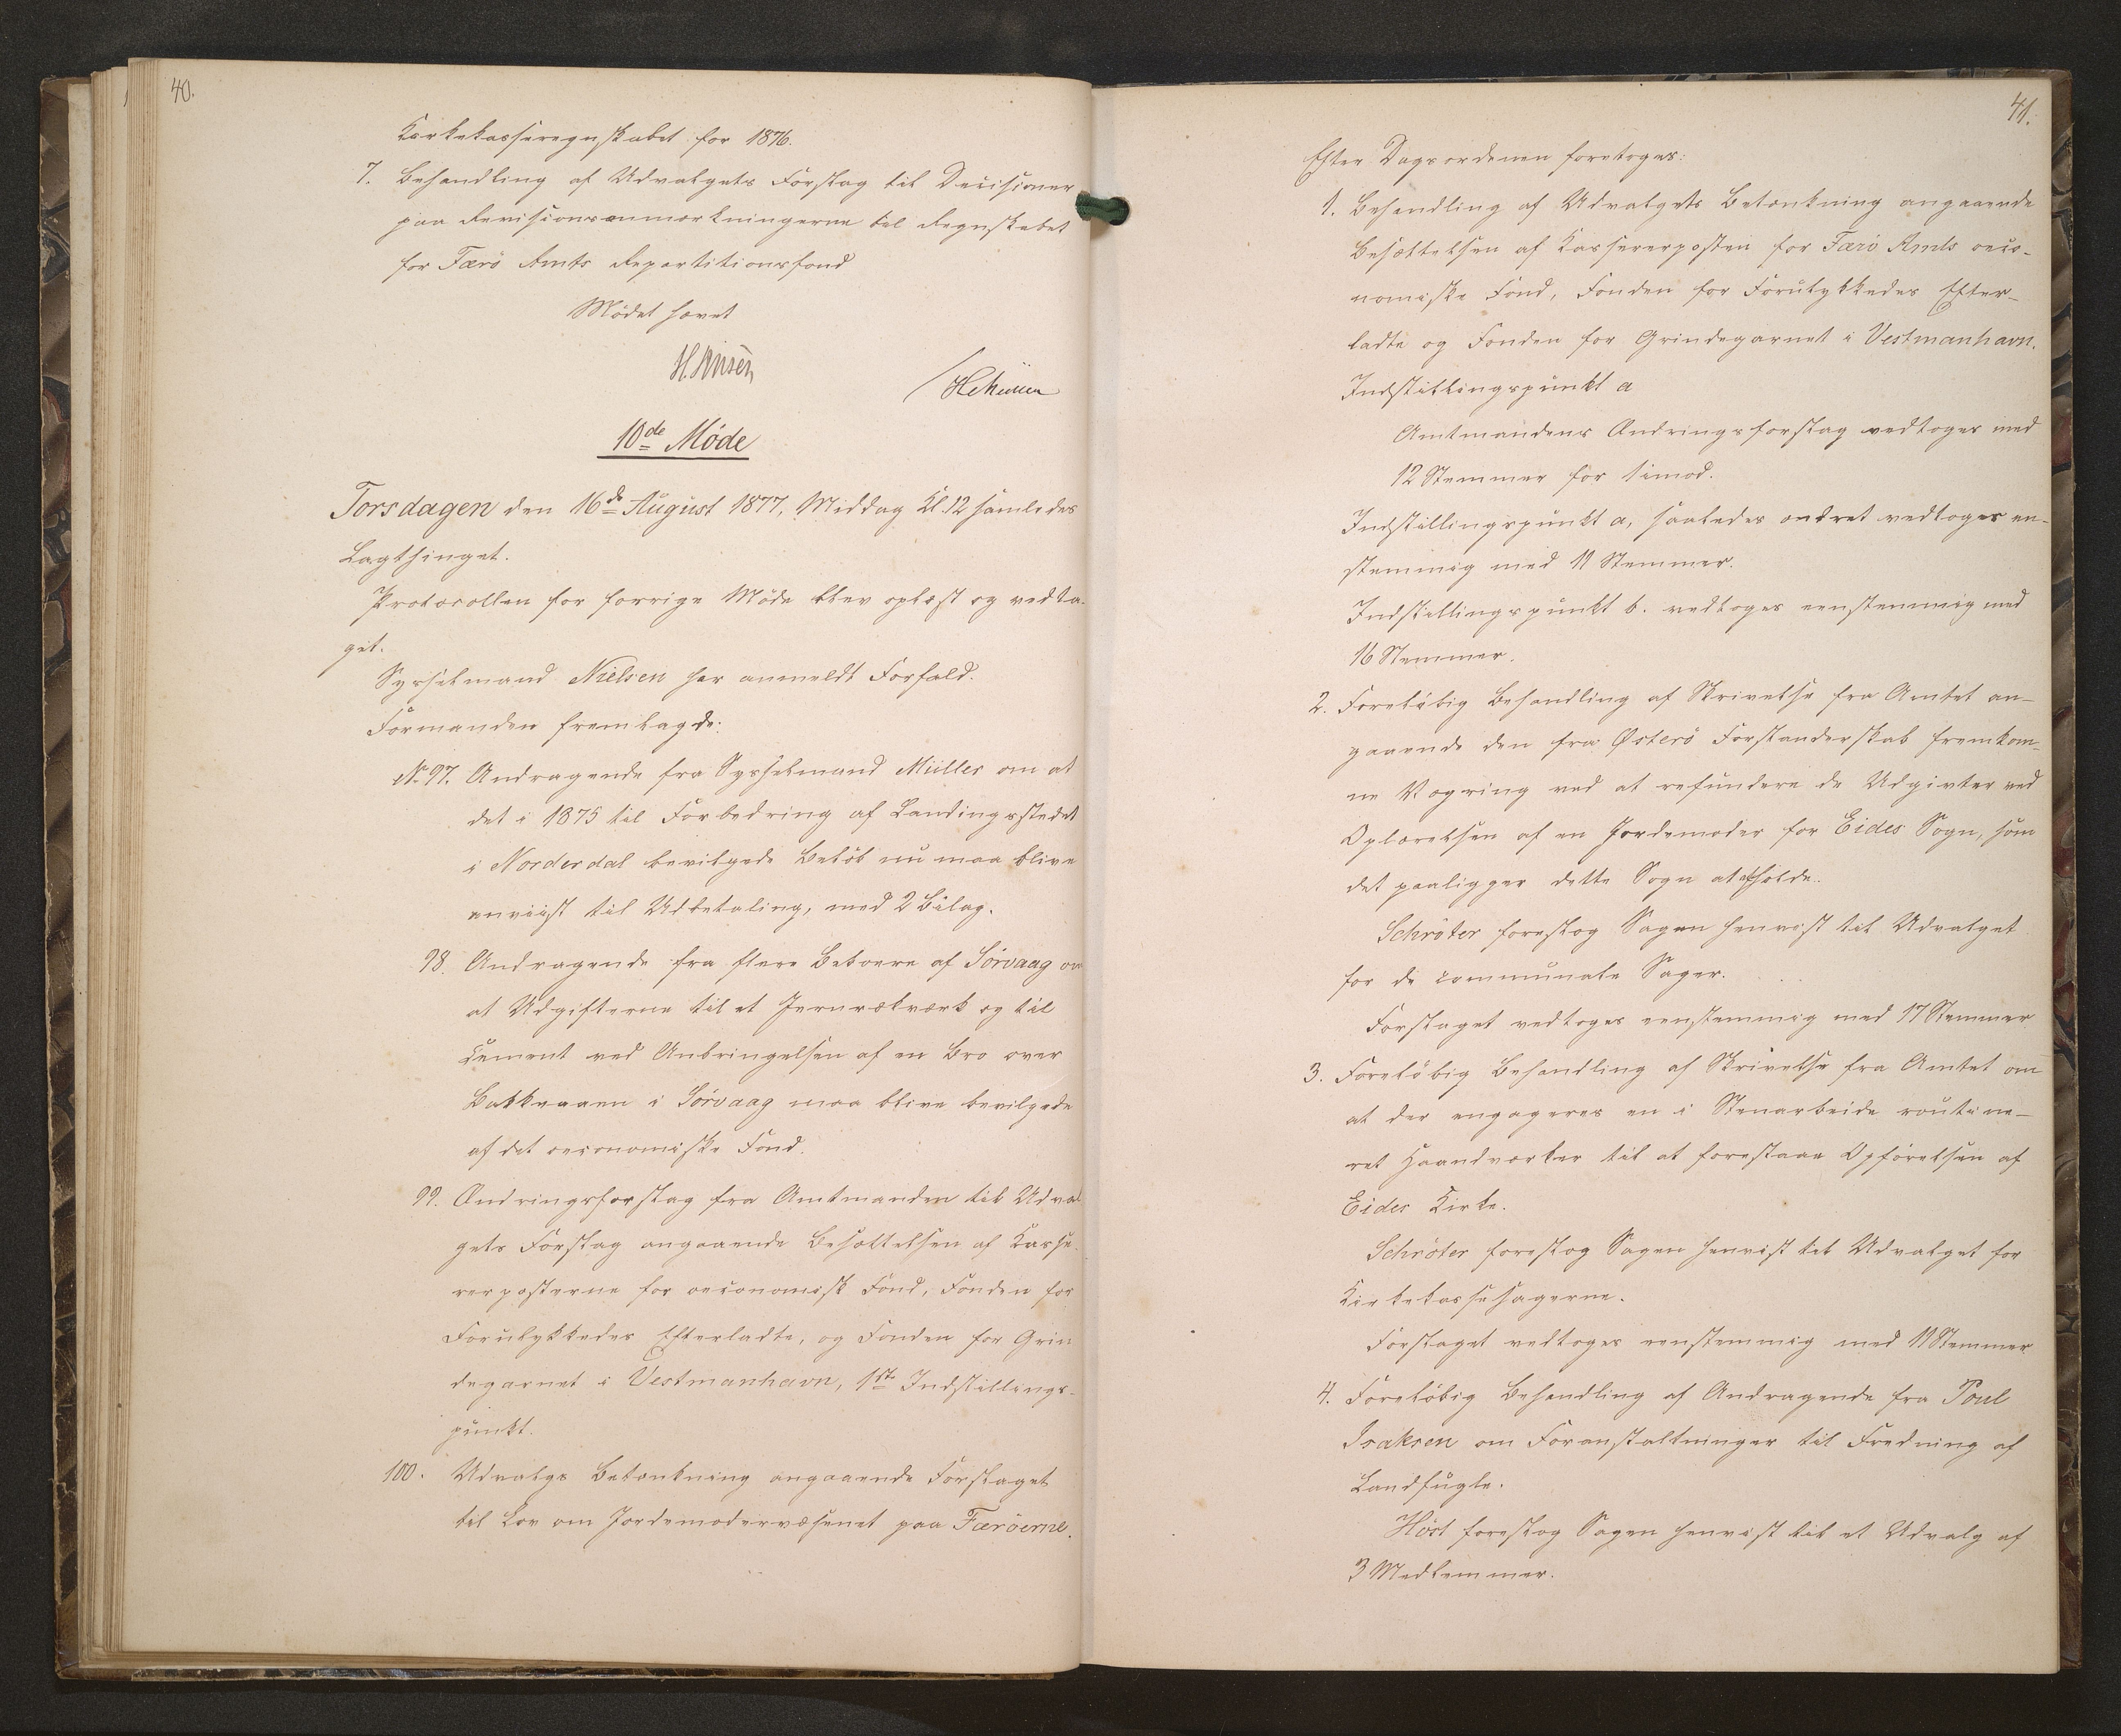 40.
Kirkekasseregnskabet for 1876.
7. Behandling af Udvalgets Forslag til Decisioner
paa Revisionsanmærkningerne til Regnskabet
for Færö Amts Repartitionsfond
Mödet hævet
H. Jensen
HC Müller
10de Möde
Torsdagen den 16de August 1877, Middag Kl. 12 samledes
Lagthinget.
Protocollen for forrige Möde blev oplæst og vedta-
get.
Sysselmand Nielsen har anmeldt Forfald.
Formanden fremlagde:
No. 97. Andragende fra Sysselmand Müller om at
det i 1875 til Forbedring af Landingsstedet
i Norderdal bevilgede Belöb nu maa blive
anviist til Udbetaling, med 2 Bilag.
98. Andragende fra flere Beboere af Sörvaag om
at Udgifterne til et Jernrækværk og til
Cement ved Anbringelsen af en Bro over
Bakkeaaen i Sörvaag maa blive bevilgede
af det oeconomiske Fond.
99. Ændringsforslag fra Amtmanden til Udval
gets Forslag angaaende Besættelsen af Kasse-
rerposterne for oeconomisk Fond, Fonden for
Forulykkedes Efterladte, og Fonden for Grin
degarnet i Vestmanhavn, 1ste Indstillings-
punkt.
100. Udvalgs Betænkning angaaende Forslaget
til Lov om Jordemodervæsenet paa Færöerne.
41.
Efter Dagsordenen foretoges:
1. Behandling af Udvalgets Betænkning angaaende
Besættelsen af Kassererposten for Færö Amts oeco-
nomiske Fond, Fonden for Forulykkedes Efter-
ladte og Fonden for Grindegarnet i Vestmanhavn.
Indstillingspunkt a
Amtmandens Ændringsforslag vedtoges med
12 Stemmer for 1 imod.
Indstillingspunkt a, saaledes ændret vedtoges en-
stemmig med 11 Stemmer.
Indstillingspunkt b. vedtoges eenstemmig med
16 Stemmer.
2. Forelöbig Behandling af Skrivelse fra Amtet an-
gaaende den fra Østerö Forstanderskab fremkom-
ne Vægring ved at refundere de Udgivter ved
Oplærelsen af en Jordemoder for Eides Sogn, som
det paaligger dette Sogn at afholde.
Schröter foreslog Sagen henvist til Udvalget
for de communale Sager.
Forslaget vedtoges eenstemmig med 17 Stemmer
3. Forelöbig Behandling af Skrivelse fra Amtet om
at der engageres en i Stenarbeide routine-
ret Haandværker til at forestaae Opförelsen af
Eides Kirke.
Schröter foreslog Sagen henvist til Udvalget for
Kirkekassesagerne.
Forslaget vedtoges eenstemmig med 11 Stemmer
4. Forelöbig Behandling af Andragende fra Poul
Isaksen om Foranstaltninger til Fredning af
Landfugle.
Höst foreslog Sagen henvist til et Udvalg af
3 Medlemmer.